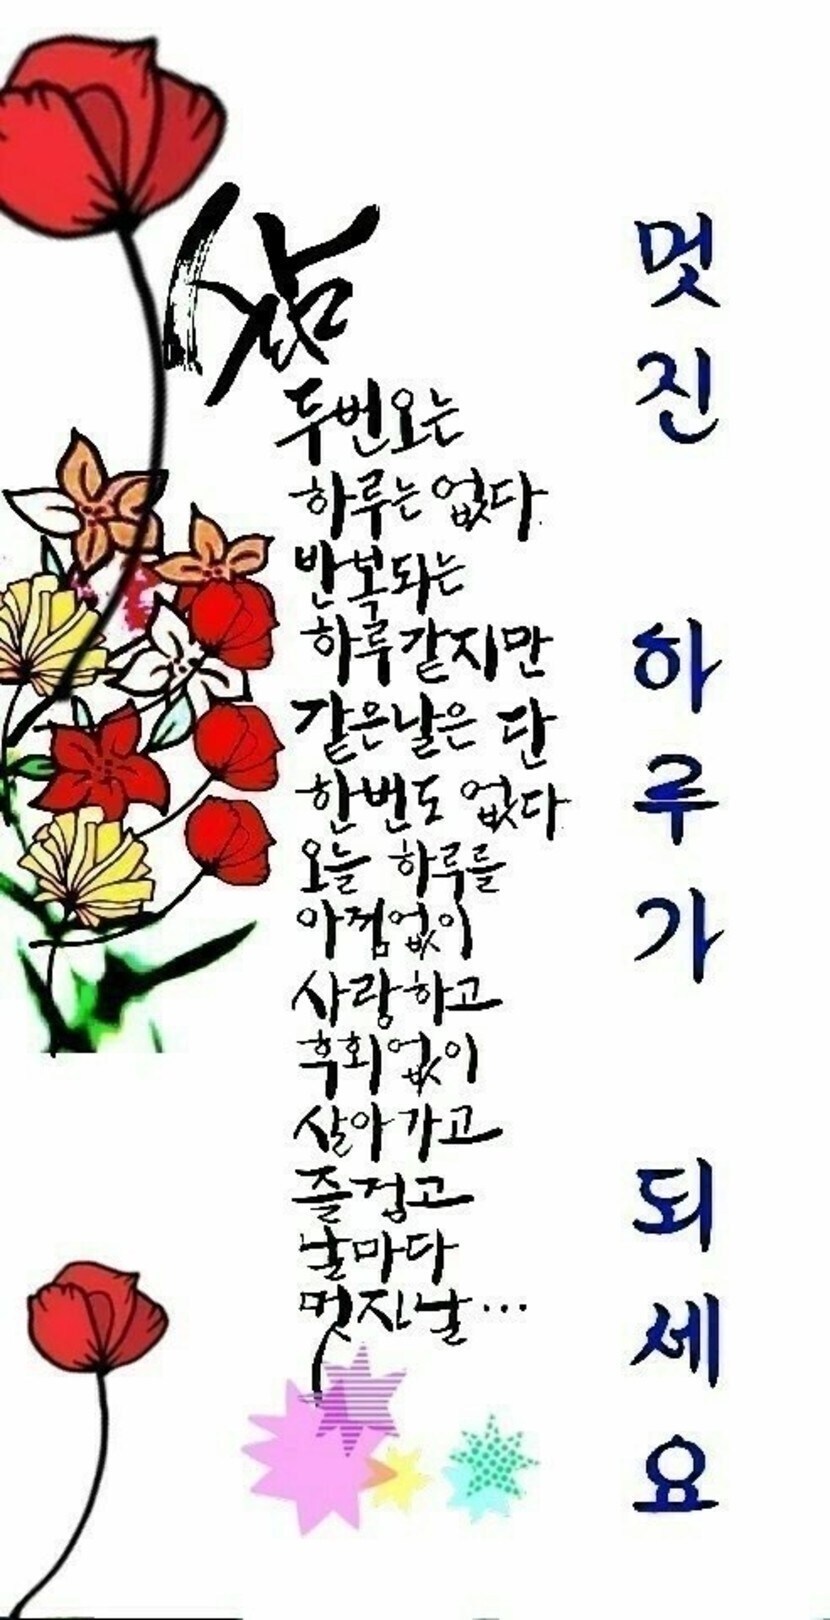 삶
두번오는
하루는 없다.
반복되는
하루같지만
같은날은 단
한번도 없다
오늘 하루를
아낌없이
사랑하고
후회없이
살아가고
즐겁고
날마다
멋진날...
멋진 하루가 되세요